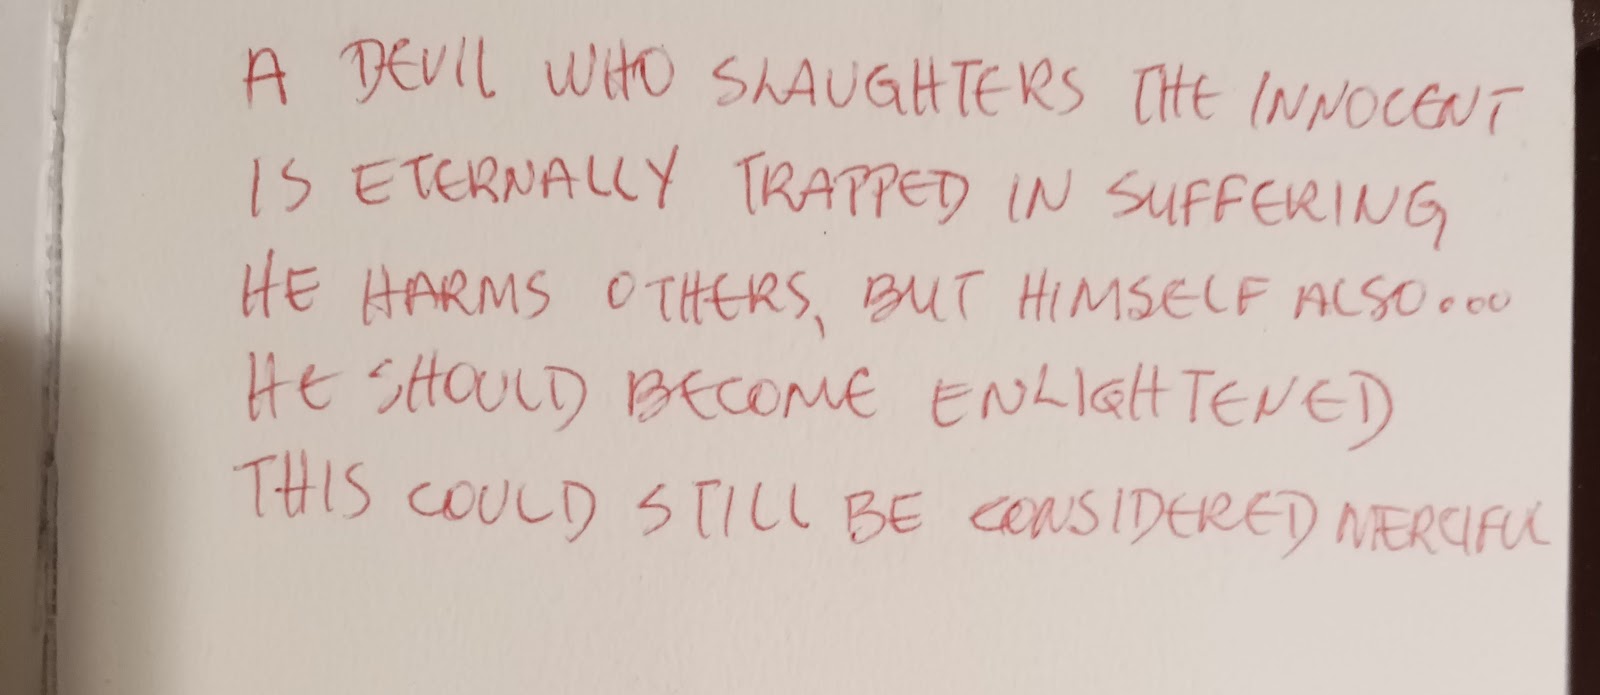 A DEVIL WHO SLAUGHTERS THE INNOCENT
IS ETERNALLY TRAPPED IN SUFFERING
HE HARMS OTHERS, BUT HIMSELF ALSO...
HE SHOULD BECOME ENLIGHTENED
THIS COULD STILL BE CONSIDERED MERCIFUL